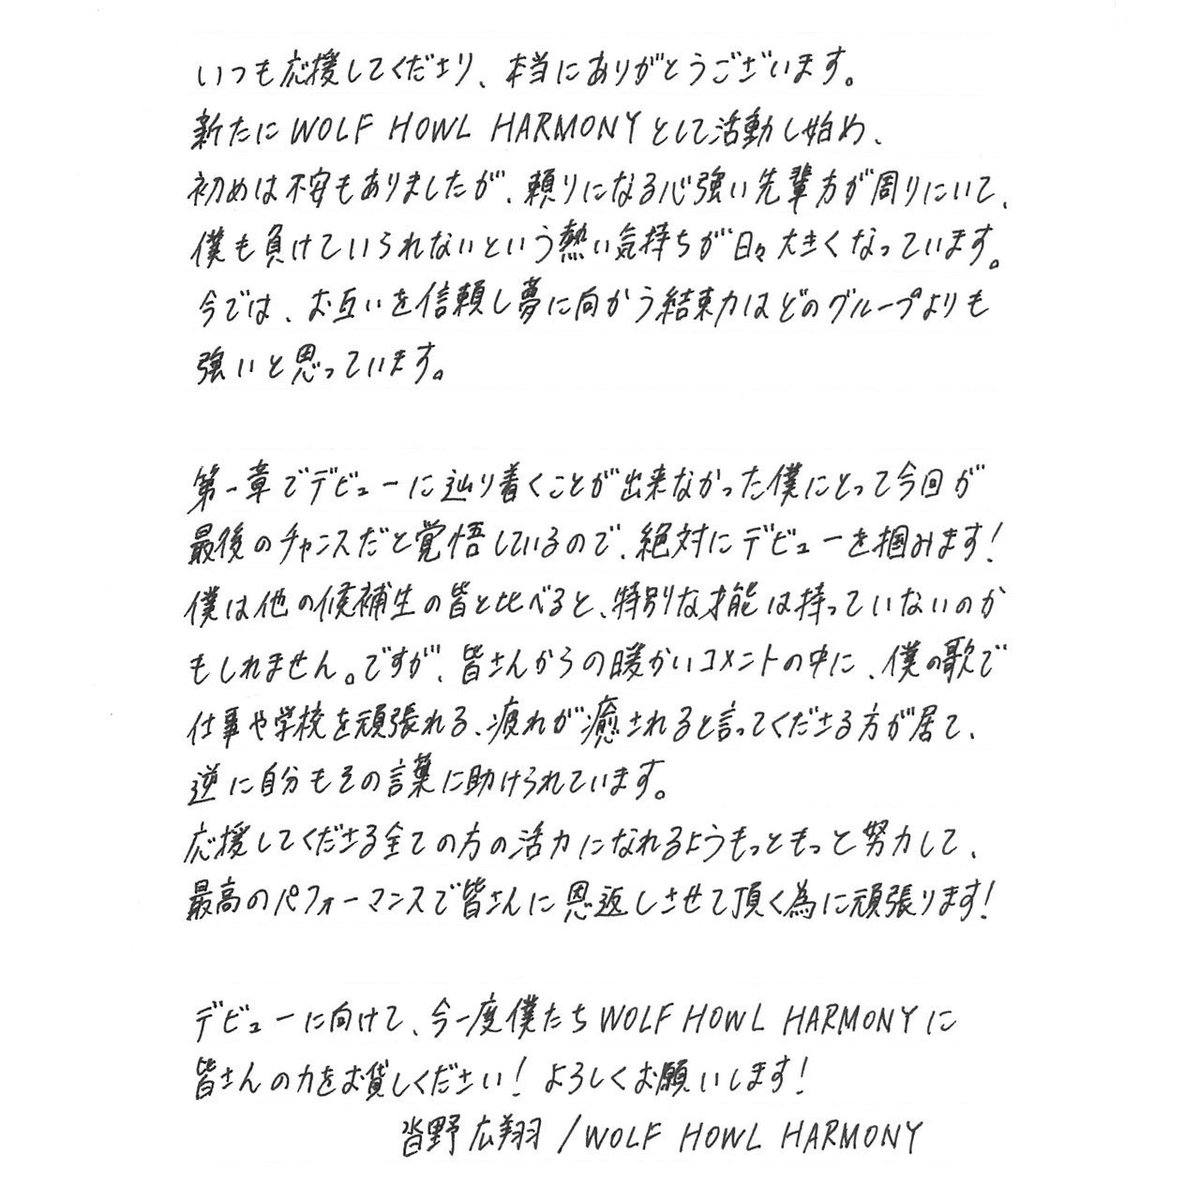 いつも応援してくださり、本当にありがとうございます。
新たに WOLF HOWL HARMONYとして活動し始め、
初めは不安もありましたが、頼りになる心強い先輩方が周りにいて、
僕も負けていられないという熱い気持ちが日々大きくなっています。
今では、お互いを信頼し夢に向かう結束力はどのグループよりも
強いと思っています。
第一章でデビューに辿り着くことが出来なかった僕にとって今回が
最後のチャンスだと覚悟しているので、絶対にデビューを掴みます!
僕は他の候補生の皆と比べると、特別な才能は持っていないのか
もしれません。ですが、皆さんからの暖かいコメントの中に、僕の歌で
仕事や学校を頑張れる、疲れが癒されると言ってくださる方が居て、
逆に自分もその言葉に助けられています。
応援してくださる全ての方の活力になれるようもっともっと努力して、
最高のパフォーマンスで皆さんに恩返しさせて頂く為に頑張ります!
デビューに向けて、今一度僕たち WOLF HOWL HARMONYに
皆さんの力をお貸しください! よろしくお願いします!
沓野 広翔 /WOLF HOWL HARMONY